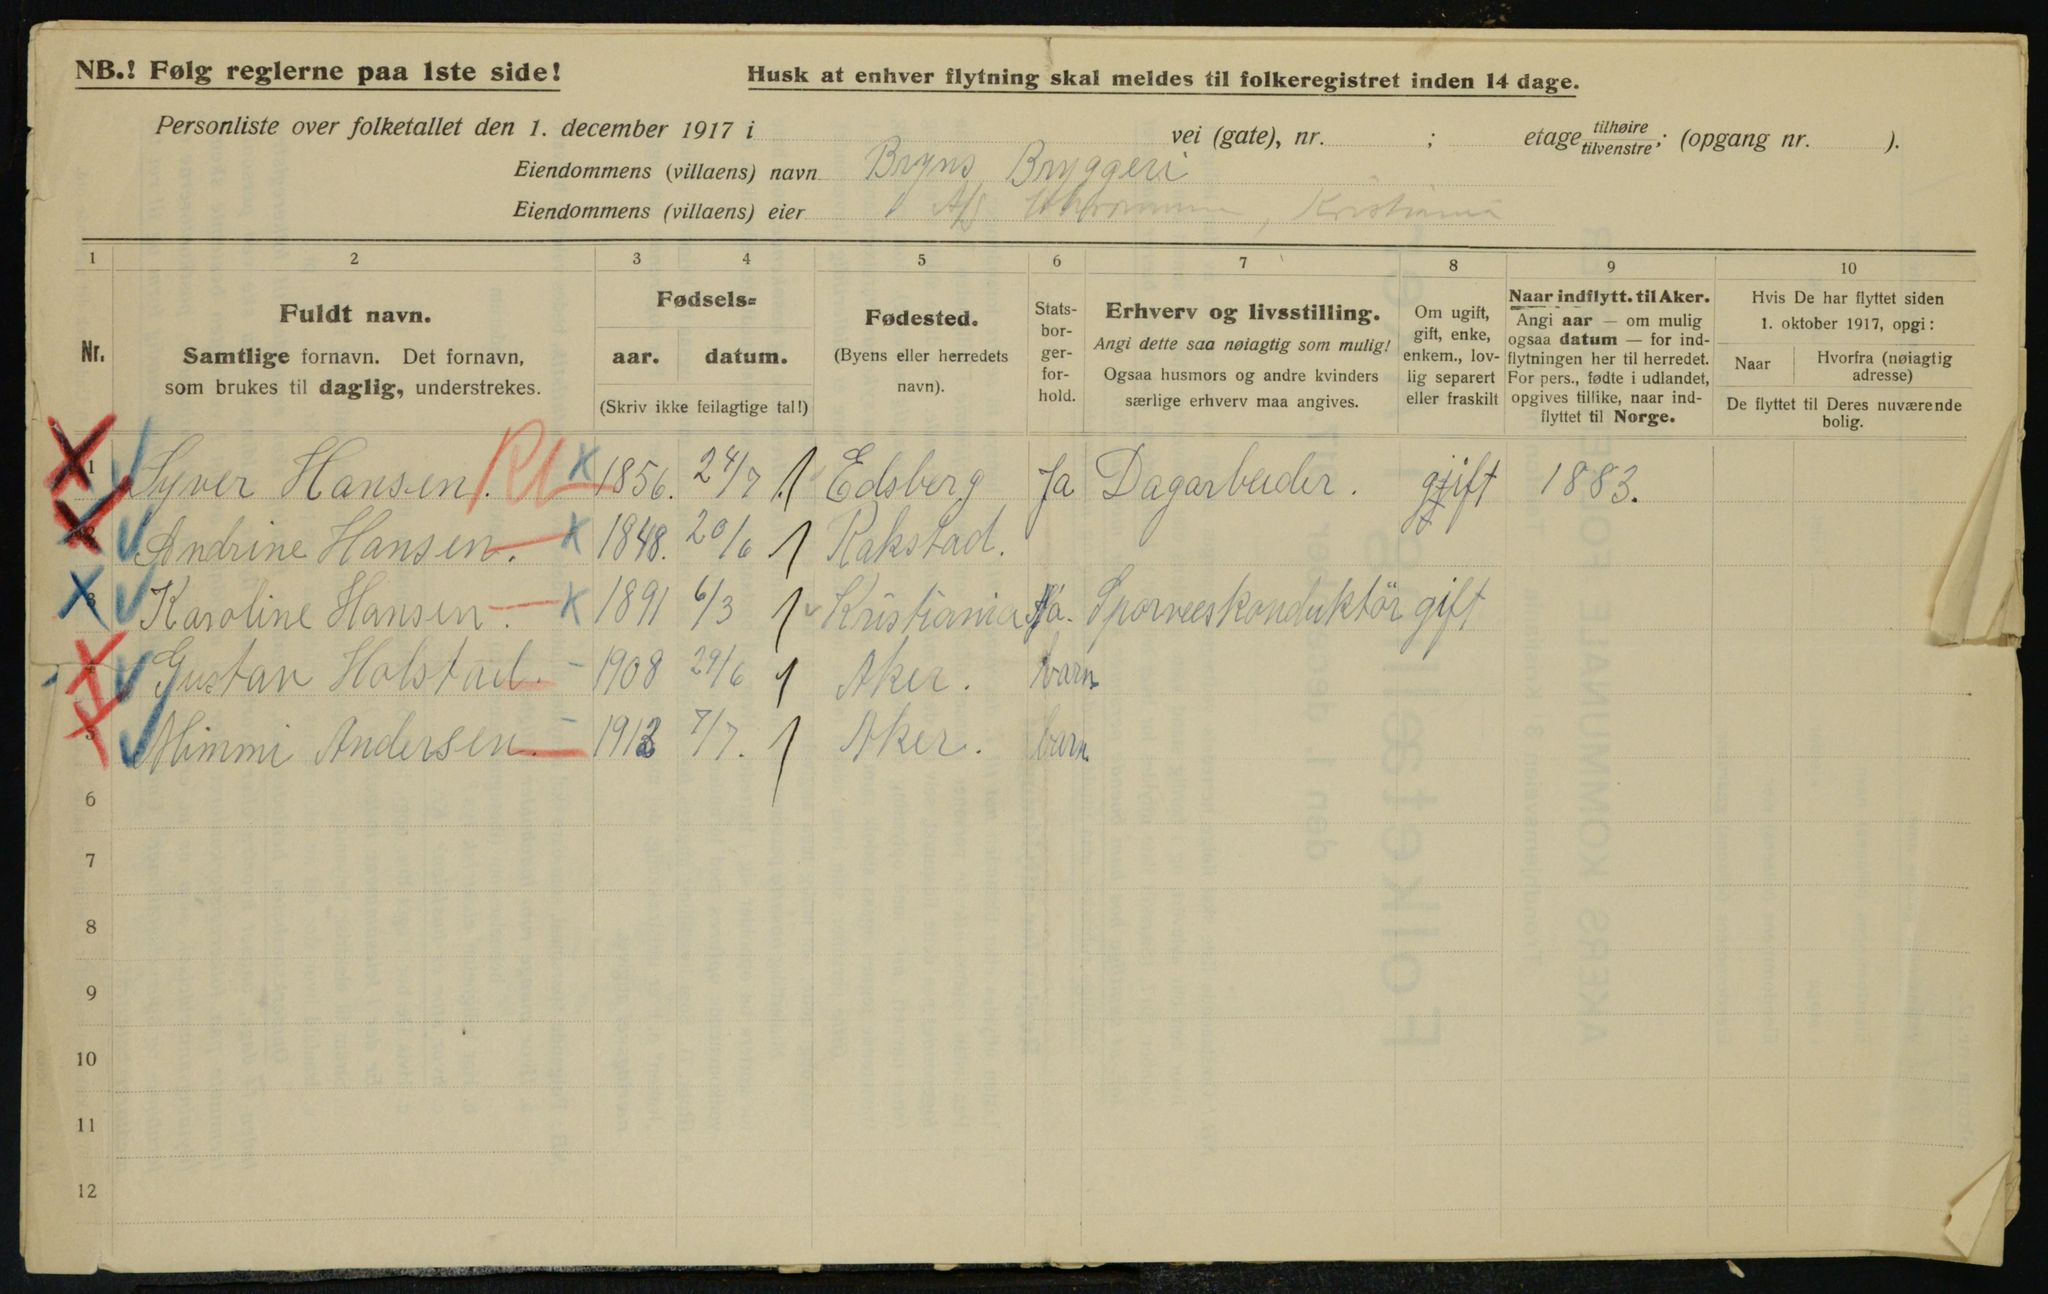 NB.! Følg reglerne paa 1ste side!
Husk at enhver flytning skal meldes til folkeregistret inden 14 dage.
Personliste over folketallet den 1. december 1917 i vei (gate), nr. ; etage tilhøire tilvenstre; (opgang nr. ).
Eiendommens (villaens) navn Bryns Bryggeri
Eiendommens (villaens) eier A/S , Kristiania
1 2 3 4 5 6 7 8 9 10
Nr.
Fuldt navn.
Samtlige fornavn. Det fornavn,
som brukes til daglig, understrekes.
Fødsels=
aar. datum.
(Skriv ikke feilagtige tal!)
Fødested.
(Byens eller herredets
navn).
Stats-
bor-
ger-
for-
hold.
Erhverv og livsstilling.
Angi dette saa nøiagtig som mulig!
Ogsaa husmors og andre kvinders
særlige erhverv maa angives.
Om ugift,
gift, enke,
enkem., lov-
lig separert
eller fraskilt
Naar indflytt. til Aker.
Angi aar — om mulig
ogsaa datum — for ind-
flytningen her til herredet.
For pers., fødte i udlandet,
opgives tillike, naar ind-
flyttet til Norge.
Hvis De har flyttet siden
1. oktober 1917, opgi:
Naar
Hvorfra (nøiagtig
adresse)
De flyttet til Deres nuværende
bolig.
1 Syver Hansen. 1856. 24/7 Edsberg Ja Dagarbeider. gift 1883.
2 Andrine Hansen. 1848. 20/6 Rakstad.
3 Karoline Hansen. 1891 6/3 Kristiania Ja. Sporveeskonduktör gift
4 Gustav Holstad. 1908 29/6 Aker. barn
5 Mimmi Andersen. 1912 7/7. Aker. barn
6
7
8
9
10
11
12